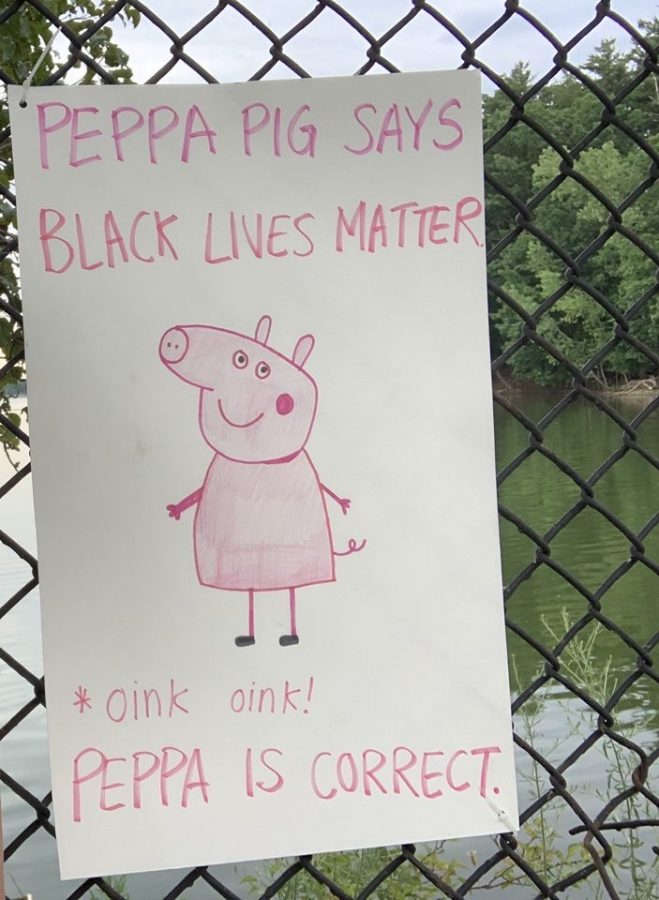 PEPPA PIG SAYS
BLACK LIVES MATTER.
*oink oink!
PEPPA IS CORRECT.